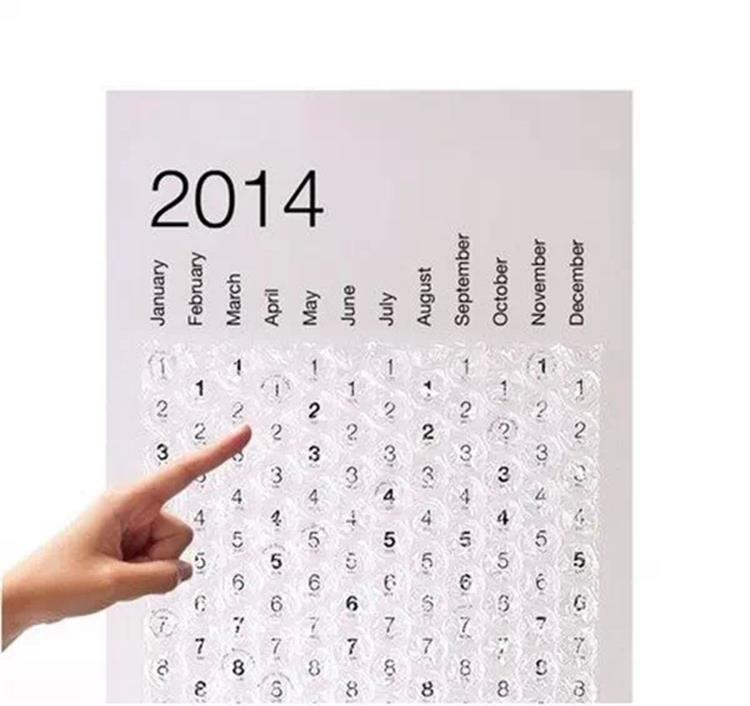 2014
January February March April May June July August September October November December
1 1 1 1 1 1
1 1 1 1 1 1
2 2 2 2 2 2
2 2 2 2 2 2
3 3 3 3 3 3
3 3 3 3 3 3
4 4 4 4 4
4 4 4 4 4 4
5 5 5 5 5
5 5 5 5 5 5
6 6 6 6 6
6 6 6 6 6 6
7 7 7 7 7 7
7 7 7 7 7 7
8 8 8 8 8 8
8 8 8 8 8 8